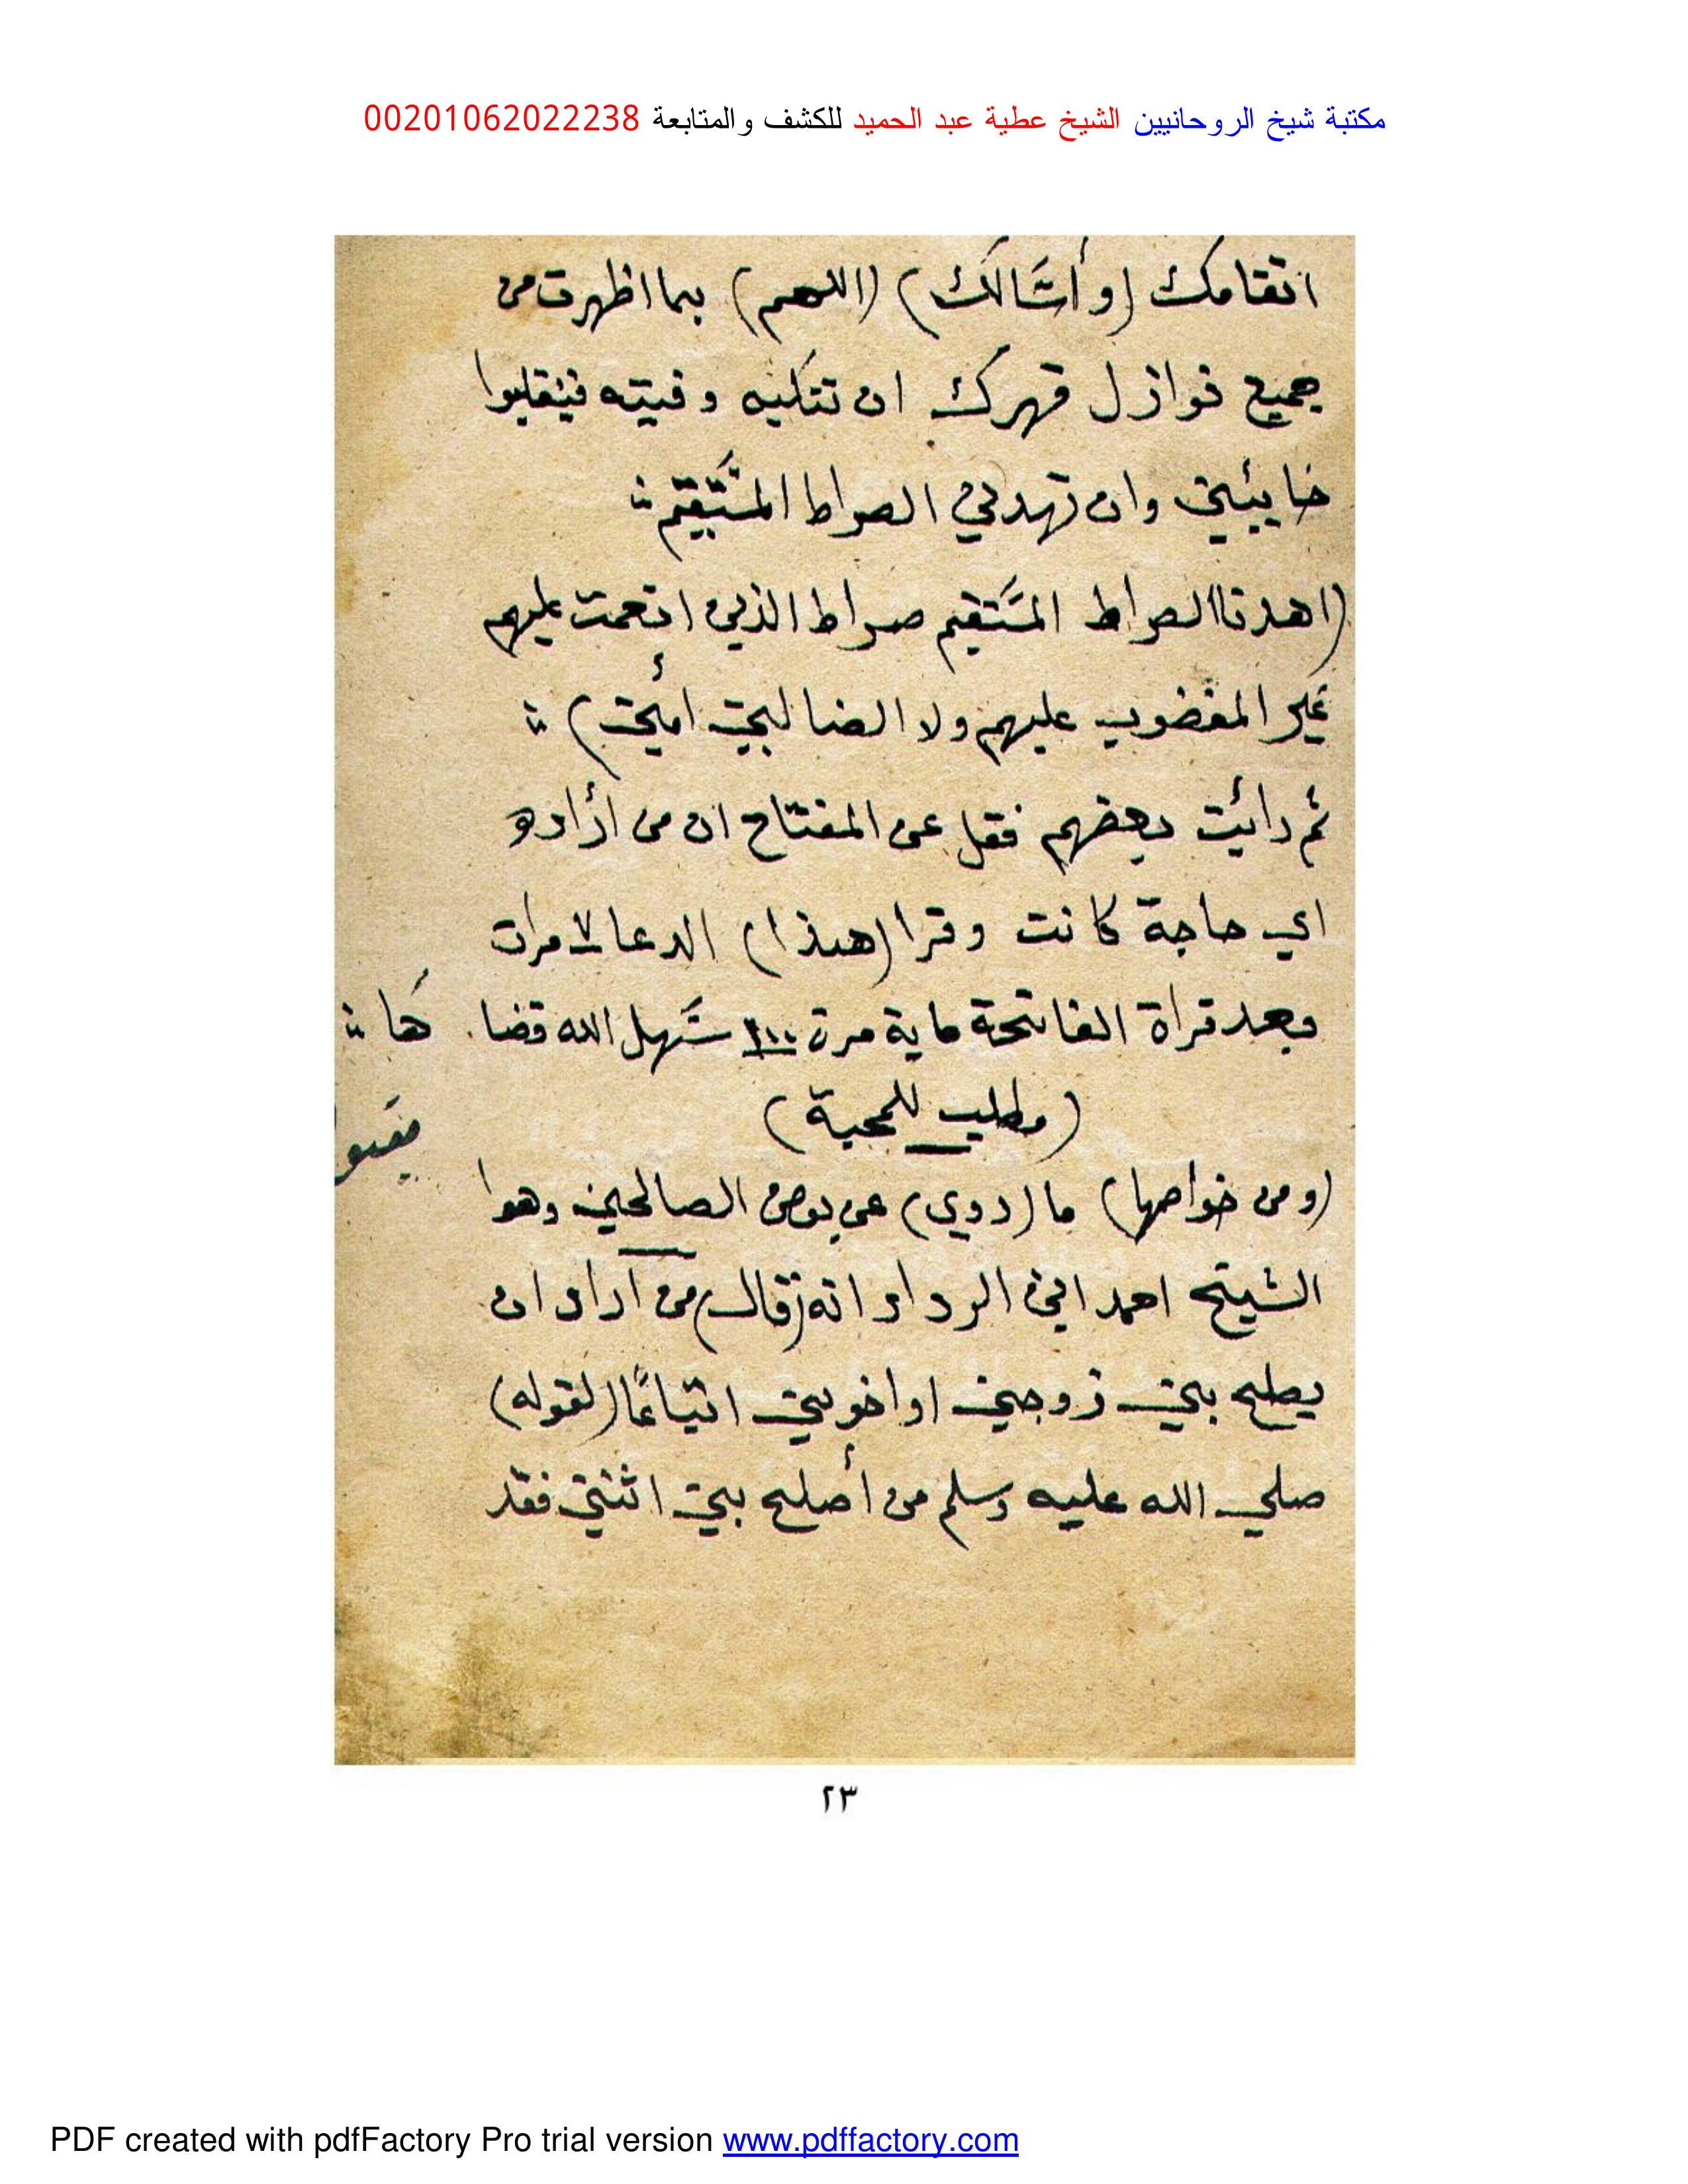 مكتبة شيخ الروحانيين الشيخ عطية عبد الحميد للكشف والمتابعة 00201062022238
انتقامك (وأسالك) (اللهم) بما اظهرت من
جميع نوازل قهرك ان وفيته فينقلبوا
خايبين وان تهدني الصراط المستقيم
(اهدنا الصراط المستقيم صراط الذين انعمت عليهم
غير المغضوب عليهم ولا الضالين امين)
ثم رائيت بعضهم نقل عن المفتاح ان من أراده
اي حاجة كانت وقرا (هذا) الدعا ٧ مرات
وبعد قراة الفاتحة ماية مرة ١٠٠ سهل الله قضاها
(مطلب للمحبة)
(ومن خواصها) ما (روي) عن بعض الصالحين وهوا
الشيخ احمد ابن الرداد انه (قال) من اراد ان
يصلح بين زوجين او اخوين اتباعًا (لقوله)
صلي الله عليه وسلم من أصلح بين اثنين فقد
٢٣
PDF created with pdfFactory Pro trial version www.pdffactory.com